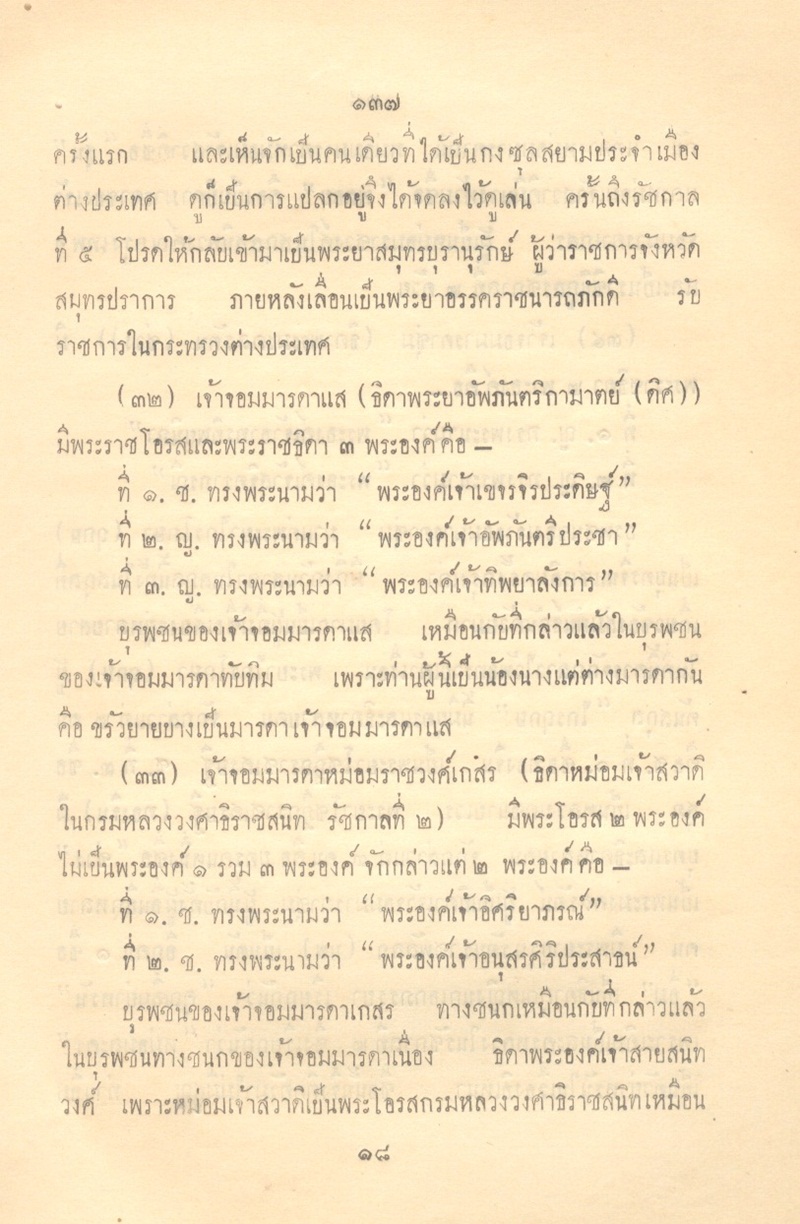 ๑๓๗
ครั้งแรก และเห็นจักเป็นคนเดียวที่ได้เป็นกงซุลสยามประจำเมือง
ต่างประเทศ ดูก็เป็นการแปลกอยู่จึงได้จดลงไว้ดูเล่น ครั้นถึงรัชกาล
ที่ ๕ โปรดให้กลับเข้ามาเป็นพระยาสมุทรบุรานุรักษ์ ผู้ว่าราชการจังหวัด
สมุทรปราการ ภายหลังเลื่อนเป็นพระยาอรรคราชนารถภักดี รับ
ราชการในกระทรวงต่างประเทศ
(๓๒) เจ้าจอมมารดาแส (ธิดาพระยาอัพภันตริกามาตย์ (ดิศ))
มีพระราชโอรสและพระราชธิดา ๓ พระองค์คือ —
ที่ ๑. ช. ทรงพระนามว่า “พระองค์เจ้าเขจรจิรประดิษฐ์”
ที่ ๒. ญ. ทรงพระนามว่า “พระองค์เจ้าอัพภันตรีประชา”
ที่ ๓. ญ. ทรงพระนามว่า “พระองค์เจ้าทิพยาลังการ”
บุรพชนของเจ้าจอมมารดาแส เหมือนกับที่กล่าวแล้วในบุรพชน
ของเจ้าจอมมารดาทับทิม เพราะท่านผู้นี้เป็นน้องนางแต่ต่างมารดากัน
คือ ขรัวยายบางเป็นมารดาเจ้าจอมมารดาแส
(๓๓) เจ้าจอมมารดาหม่อมราชวงค์เกสร (ธิดาหม่อมเจ้าสวาดิ
ในกรมหลวงวงศาธิราชสนิท รัชกาลที่ ๒) มีพระโอรส ๒ พระองค์
ไม่เป็นพระองค์ ๑ รวม ๓ พระองค์ จักกล่าวแต่ ๒ พระองค์คือ —
ที่ ๑. ช. ทรงพระนามว่า “พระองค์เจ้าอิศริยาภรณ์”
ที่ ๒. ช. ทรงพระนามว่า “พระองค์เจ้าอนุสรศิริประสาธน์”
บุรพชนของเจ้าจอมมารดาเกสร ทางชนกเหมือนกับที่กล่าวแล้ว
ในบุรพชนทางชนกของเจ้าจอมมารดาเนื่อง ธิดาพระองค์เจ้าสายสนิท
วงค์ เพราะหม่อมเจ้าสวาดิเป็นพระโอรสกรมหลวงวงศาธิราชสนิทเหมือน
๑๘